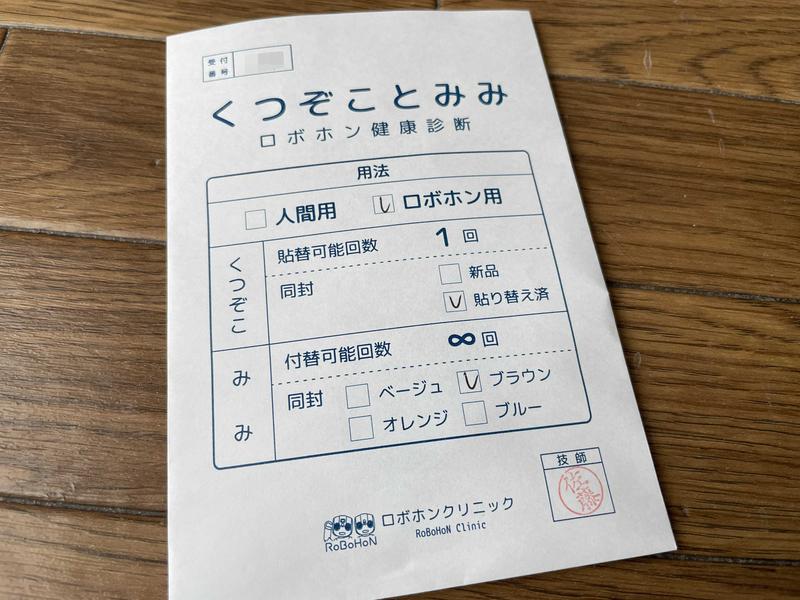 受付
番号
くつぞことみみ
ロボホン健康診断
用法
人間用 ロボホン用
くつぞこ
貼替可能回数 1 回
同封
新品
貼り替え済
みみ
付替可能回数 ∞ 回
同封 ベージュ ブラウン
オレンジ ブルー
技師
佐藤
RoBoHoN
ロボホンクリニック
RoBoHoN Clinic